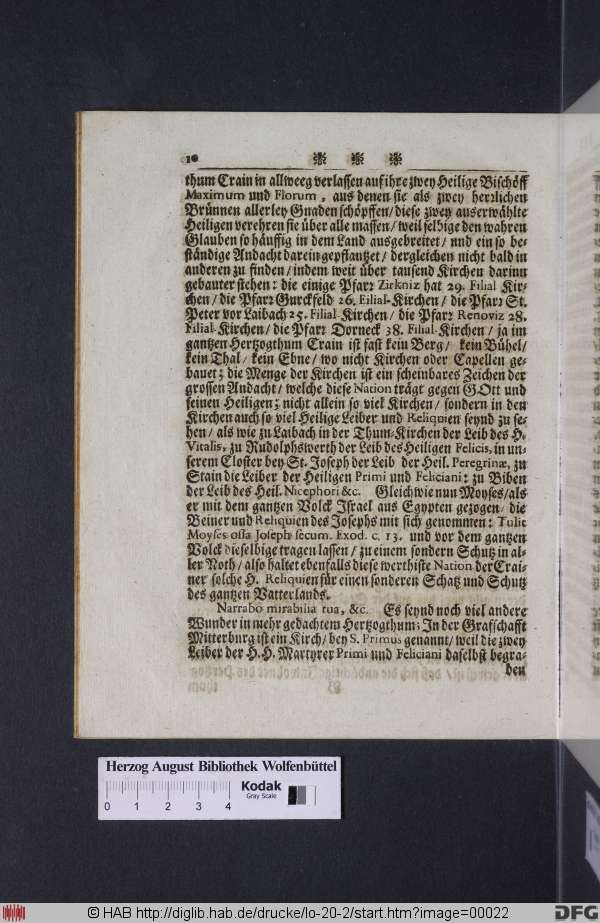 10 ❋ ❋ ❋
thum Crain in allweeg verlassen auf ihre zwey Heilige Bischöff
Maximum und Florum, aus denen sie als zwey hertzlichen
Brünnen allerley Gnaden schöpffen / diese zwey auserwählte
Heiligen verehren sie über alle massen / weil selbige den wahren
Glauben so häuffig in dem Land ausgebreitet / und ein so be-
ständige Andacht darein gepflantzet / dergleichen nicht bald in
anderen zu finden / indem weit über tausend Kirchen darinn
gebauter stehen: die einige Pfarr Zirkniz hat 29. Filial Kir-
chen / die Pfarr Gurckfeld 26. Filial-Kirchen / die Pfarr St.
Peter vor Laibach 25. Filial-Kirchen / die Pfarr Renoviz 28.
Filial-Kirchen / die Pfarr Dorneck 38. Filial-Kirchen / ja im
gantzen Hertzogthum Crain ist fast kein Berg / kein Bühel /
kein Thal / kein Ebne / wo nicht Kirchen oder Capellen ge-
bauet; die Menge der Kirchen ist ein scheinbares Zeichen der
grossen Andacht / welche diese Nation trägt gegen GOtt und
seinen Heiligen; nicht allein so viel Kirchen / sondern in den
Kirchen auch so viel Heilige Leiber und Reliquien seynd zu se-
hen / als wie zu Laibach in der Thum-Kirchen der Leib des H.
Vitalis, zu Rudolphswerth der Leib des Heiligen Felicis, in un-
serem Closter bey St. Joseph der Leib der Heil. Peregrinæ, zu
Stain die Leiber der Heiligen Primi und Feliciani: zu Biben
der Leib des Heil. Nicephori &c. Gleich wie nun Moyses / als
er mit dem gantzen Volck Israel aus Egypten gezogen / die
Beiner und Reliquien des Josephs mit sich genommen: Tulit
Moyses ossa Joseph secum. Exod. c. 13. und vor dem gantzen
Volck dieselbige tragen lassen / zu einem sondern Schutz in al-
ler Noth / also haltet ebenfalls diese werthiste Nation der Crai-
ner solche H. Reliquien für einen sonderen Schatz und Schutz
des gantzen Vatterlands.
Narrabo mirabilia tua, &c. Es seynd noch viel andere
Wunder in mehr gedachtem Hertzogthum: In der Grafschafft
Mitterburg ist ein Kirch / bey S. Primus genannt / weil die zwey
Leiber der H. H. Martyrer Primi und Feliciani daselbst begra-
ben
Herzog August Bibliothek Wolfenbüttel
Kodak
Gray Scale
0 1 2 3 4
© HAB http://diglib.hab.de/drucke/lo-20-2/start.htm?image=00022
DFG